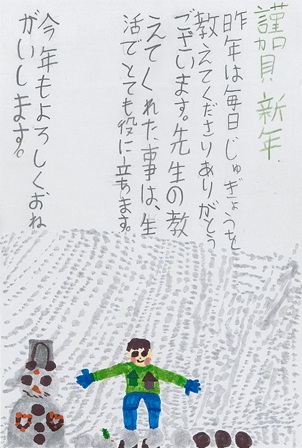 謹賀新年
昨年は毎日じゅぎょうを
教えてくださりありがとう
ございます。先生の教
えてくれた事は、生
活でとても役に立ちます。
今年もよろしくおね
がいします。